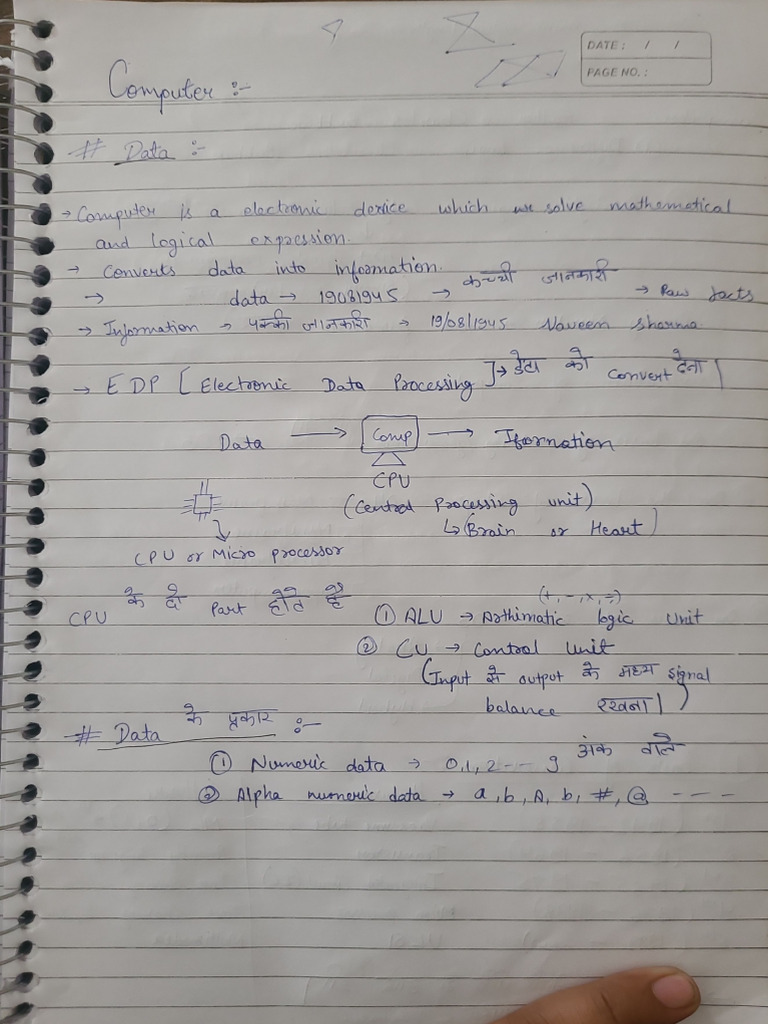 DATE : / /
PAGE NO. :
Computer :-
# Data :-
→ Computer is a electronic device which we solve mathematical
and logical expression.
→ Converts data into information.
→ data → 19081945 → कच्ची जानकारी → Raw facts
→ Information → पक्की जानकारी → 19/08/1945 Naveen Sharma
→ EDP [Electronic Data Processing] → डेटा को convert देना।
Data → Comp → Ifornation
CPU
(Central Processing unit)
↳ (Brain or Heart)
CPU or Micro processor
CPU के दो Part होते है
(+, -, x, ÷)
① ALU → Arthimatic logic Unit
② CU → Control Unit
(Input से output के मध्य signal
balance रखना।)
# Data के प्रकार :-
① Numeric data → 0,1,2--- 9 अंक वाले
② Alpha numeric data → a, b, A, b, #, @ ----